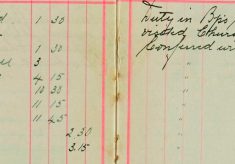 1 30
Duty in Bps
visited Chur
1 30
Confined wr
3
"
4 15
"
10 30
"
11 15
"
11 45
"
2.30
"
3.15
"